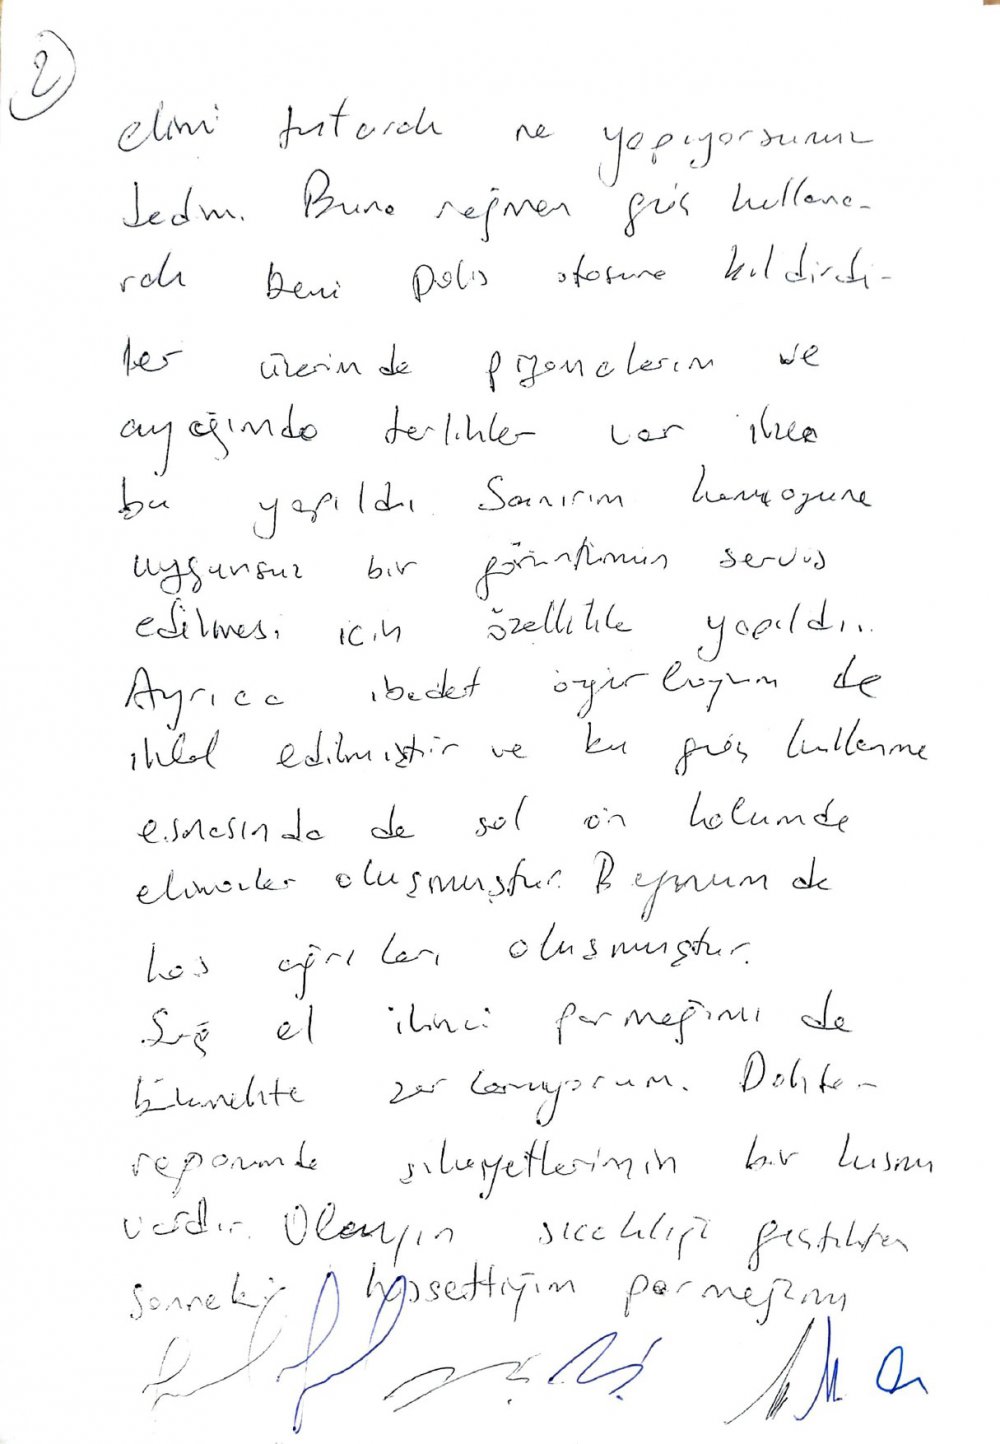 2
elimi tutarak ne yapıyorsunuz
dedim. Buna rağmen güç kullana-
rak beni polis otosuna bildirdi-
ler üzerimde pijamalarım ve
ayağımda terlikler var iken
bu yapıldı Sanırım kamuoyuna
uygunsuz bir görüntümün servis
edilmesi için özellikle yapıldı..
Ayrıca ibadet özgürlüğüm de
ihlal edilmiştir ve bu güç kullanma
esnasında da sol ön kolumda
ekimozlar oluşmuştur. Boynumda
kas ağrıları oluşmuştur.
Sağ el ikinci parmağımı da
bükmekte zorlanıyorum. Doktor
raporunda şikayetlerimin bir kısmı
vardır. Olayın sıcaklığı geçtikten
sonraki hissettiğim parmağımı